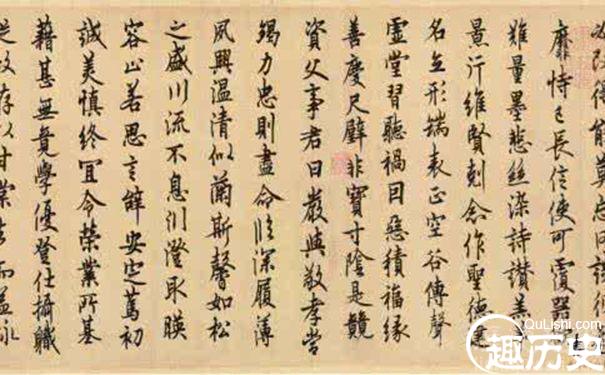 必改得能莫忘罔談彼
靡恃己長信使可覆器
難量墨悲絲染詩讚羔
景行維賢剋念作聖德建
名立形端表正空谷傳聲
虛堂習聽禍因惡積福緣
善慶尺璧非寶寸陰是競
資父事君曰嚴與敬孝當
竭力忠則盡命臨深履薄
夙興溫凊似蘭斯馨如松
之盛川流不息淵澄取暎
容止若思言辭安定篤初
誠美慎終宜令榮業所基
藉甚無竟學優登仕攝職
從政存以甘棠去而益詠
QuLiShi.com
趣历史